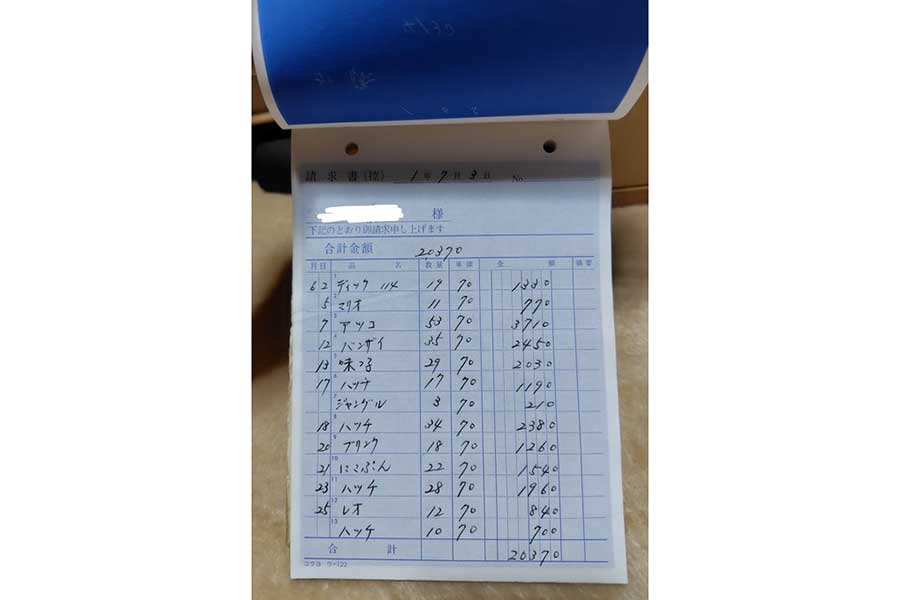 請求書(控) 1年7月3日 No.
様
下記のとおり御請求申し上げます
合計金額 20370
月日 品名 数量 単価 金額 摘要
6 2 1 ディック 114 19 70 1330
5 2 マリオ 11 70 770
7 3 アッコ 53 70 3710
12 4 バンザイ 35 70 2450
13 5 味っ子 29 70 2030
17 6 ハッチ 17 70 1190
7 ジャングル 3 70 210
18 8 ハッチ 34 70 2380
20 9 ブリンク 18 70 1260
21 10 にこぷん 22 70 1540
23 11 ハッチ 28 70 1960
25 12 レオ 12 70 840
13 ハッチ 10 70 700
合計 20370
コクヨ ウ-122